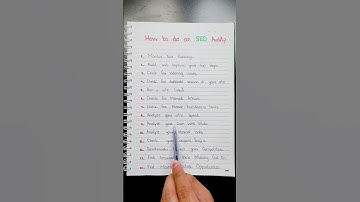 How to do an SEO Audit
1. Monitor Your Rankings
2. Audit and Improve your top Pages
3. Check for indexing issues
4. Check for duplicate version of your site
5. Run a site Crawl
6. Check for Manual Actions
7. Check for Mobile Friendliness Issues
8. Analyze your site Speed
9. Analyze your Core Web Vitals
10. Analyze your Internal Links
11. Check your
12. Benchmark against your Competitors
13. Find Keywords You're Missing Out On
14. Find More Link Opportunities